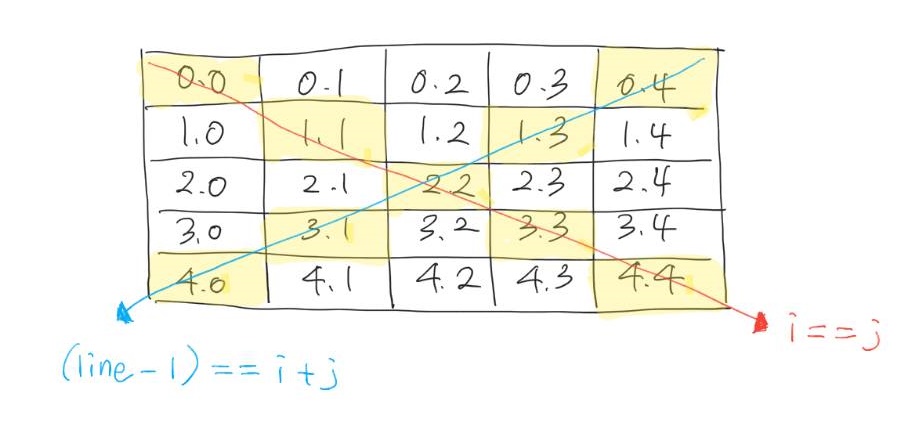 0.0 0.1 0.2 0.3 0.4
1.0 1.1 1.2 1.3 1.4
2.0 2.1 2.2 2.3 2.4
3.0 3.1 3.2 3.3 3.4
4.0 4.1 4.2 4.3 4.4
i==j
(line-1)==i+j